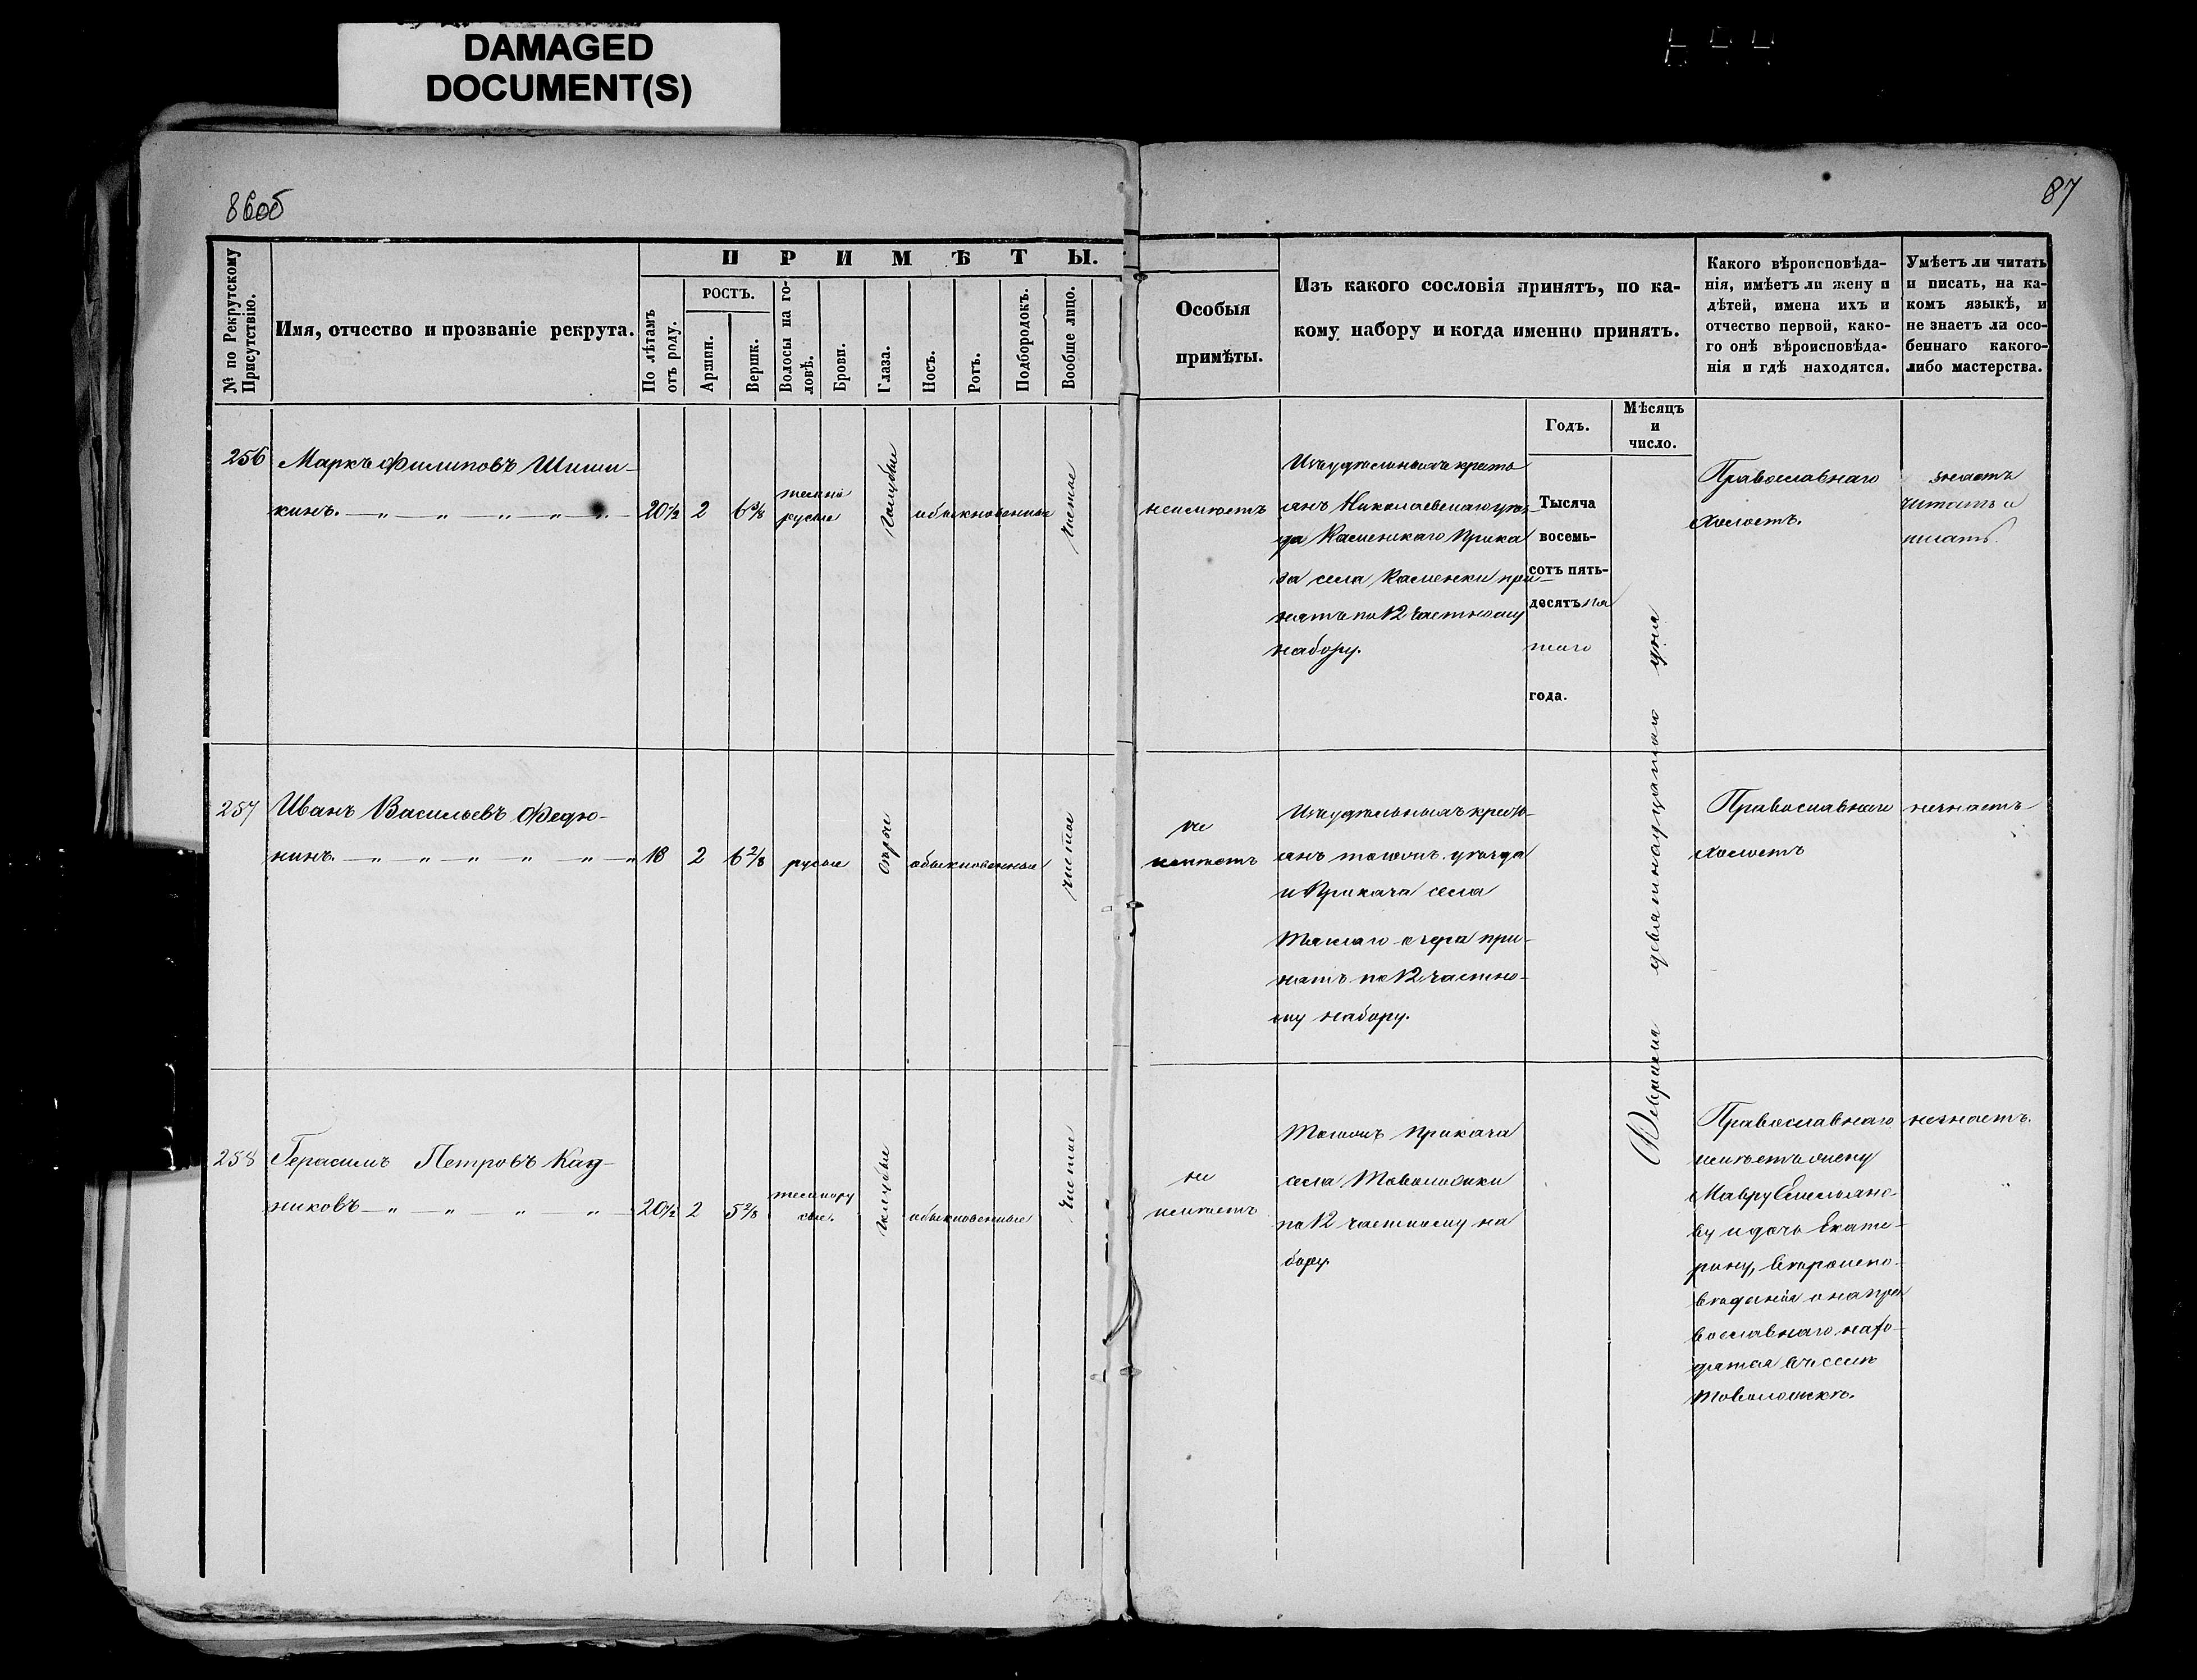 DAMAGED
DOCUMENT(S)
86об
87
№ по Рекрутскому
Присутствію.
Имя, отчество и прозваніе рекрута.
ПРИМѢТЫ.
По лѣтамъ
отъ роду.
РОСТЪ.
Аршин.
Вершк.
Волосы на го-
ловѣ.
Брови.
Глаза.
Носъ.
Ротъ.
Подбородокъ.
Вообще лицо.
Особыя
примѣты.
Изъ какого сословія принятъ, по ка-
кому набору и когда именно принятъ.
Какого вѣроисповѣда-
нія, имѣетъ ли жену и
дѣтей, имена ихъ и
отчество первой, како-
го онѣ вѣроисповѣда-
нія и гдѣ находятся.
Умѣетъ ли читать
и писать, на ка-
комъ языкѣ, и
не знаетъ ли осо-
беннаго какого-
либо мастерства.
Годъ.
Мѣсяцъ
и
число.
256
Маркъ Филиповъ Шиши-
кинъ.
20½
2
6⅜
темно
русые
голубые
обыкновенные
чистое
неимѣетъ
Изъ удѣльныхъ кресть
янъ Николаевскаго уѣз-
да Каменскаго Прика
за села Каменки при-
нятъ по 12 частному
набору.
Тысяча
восемь-
сотъ пять-
десятъ пя
таго
года.
Февраля девятнадцатаго дня
Православнаго
холостъ.
знаетъ
читать и
писать.
257
Иванъ Васильевъ Федю-
нинъ.
18
2
6 2/8
русые
сѣрые
обыкновенные
чистое
не
имѣетъ
Изъ удѣльныхъ кресть-
янъ тогожъ уѣзда
и Приказа села
Тяглаго озера при-
нятъ по 12 частно-
му набору.
Православнаго
холостъ
незнаетъ
258
Герасимъ Петровъ Кад-
никовъ
20½
2
темнору
сые.
голубые
обыкновенные
чистое
не
имѣетъ
Тогожъ Приказа
села Таволожки
по 12 частному на
бору.
Православнаго
имѣетъ жену
Мавру Емельяно-
ву и дочь Екате-
рину, вѣроиспо-
вѣданія они пра
вославнаго нахо-
дятся въ селѣ
Таволожкѣ.
незнаетъ.